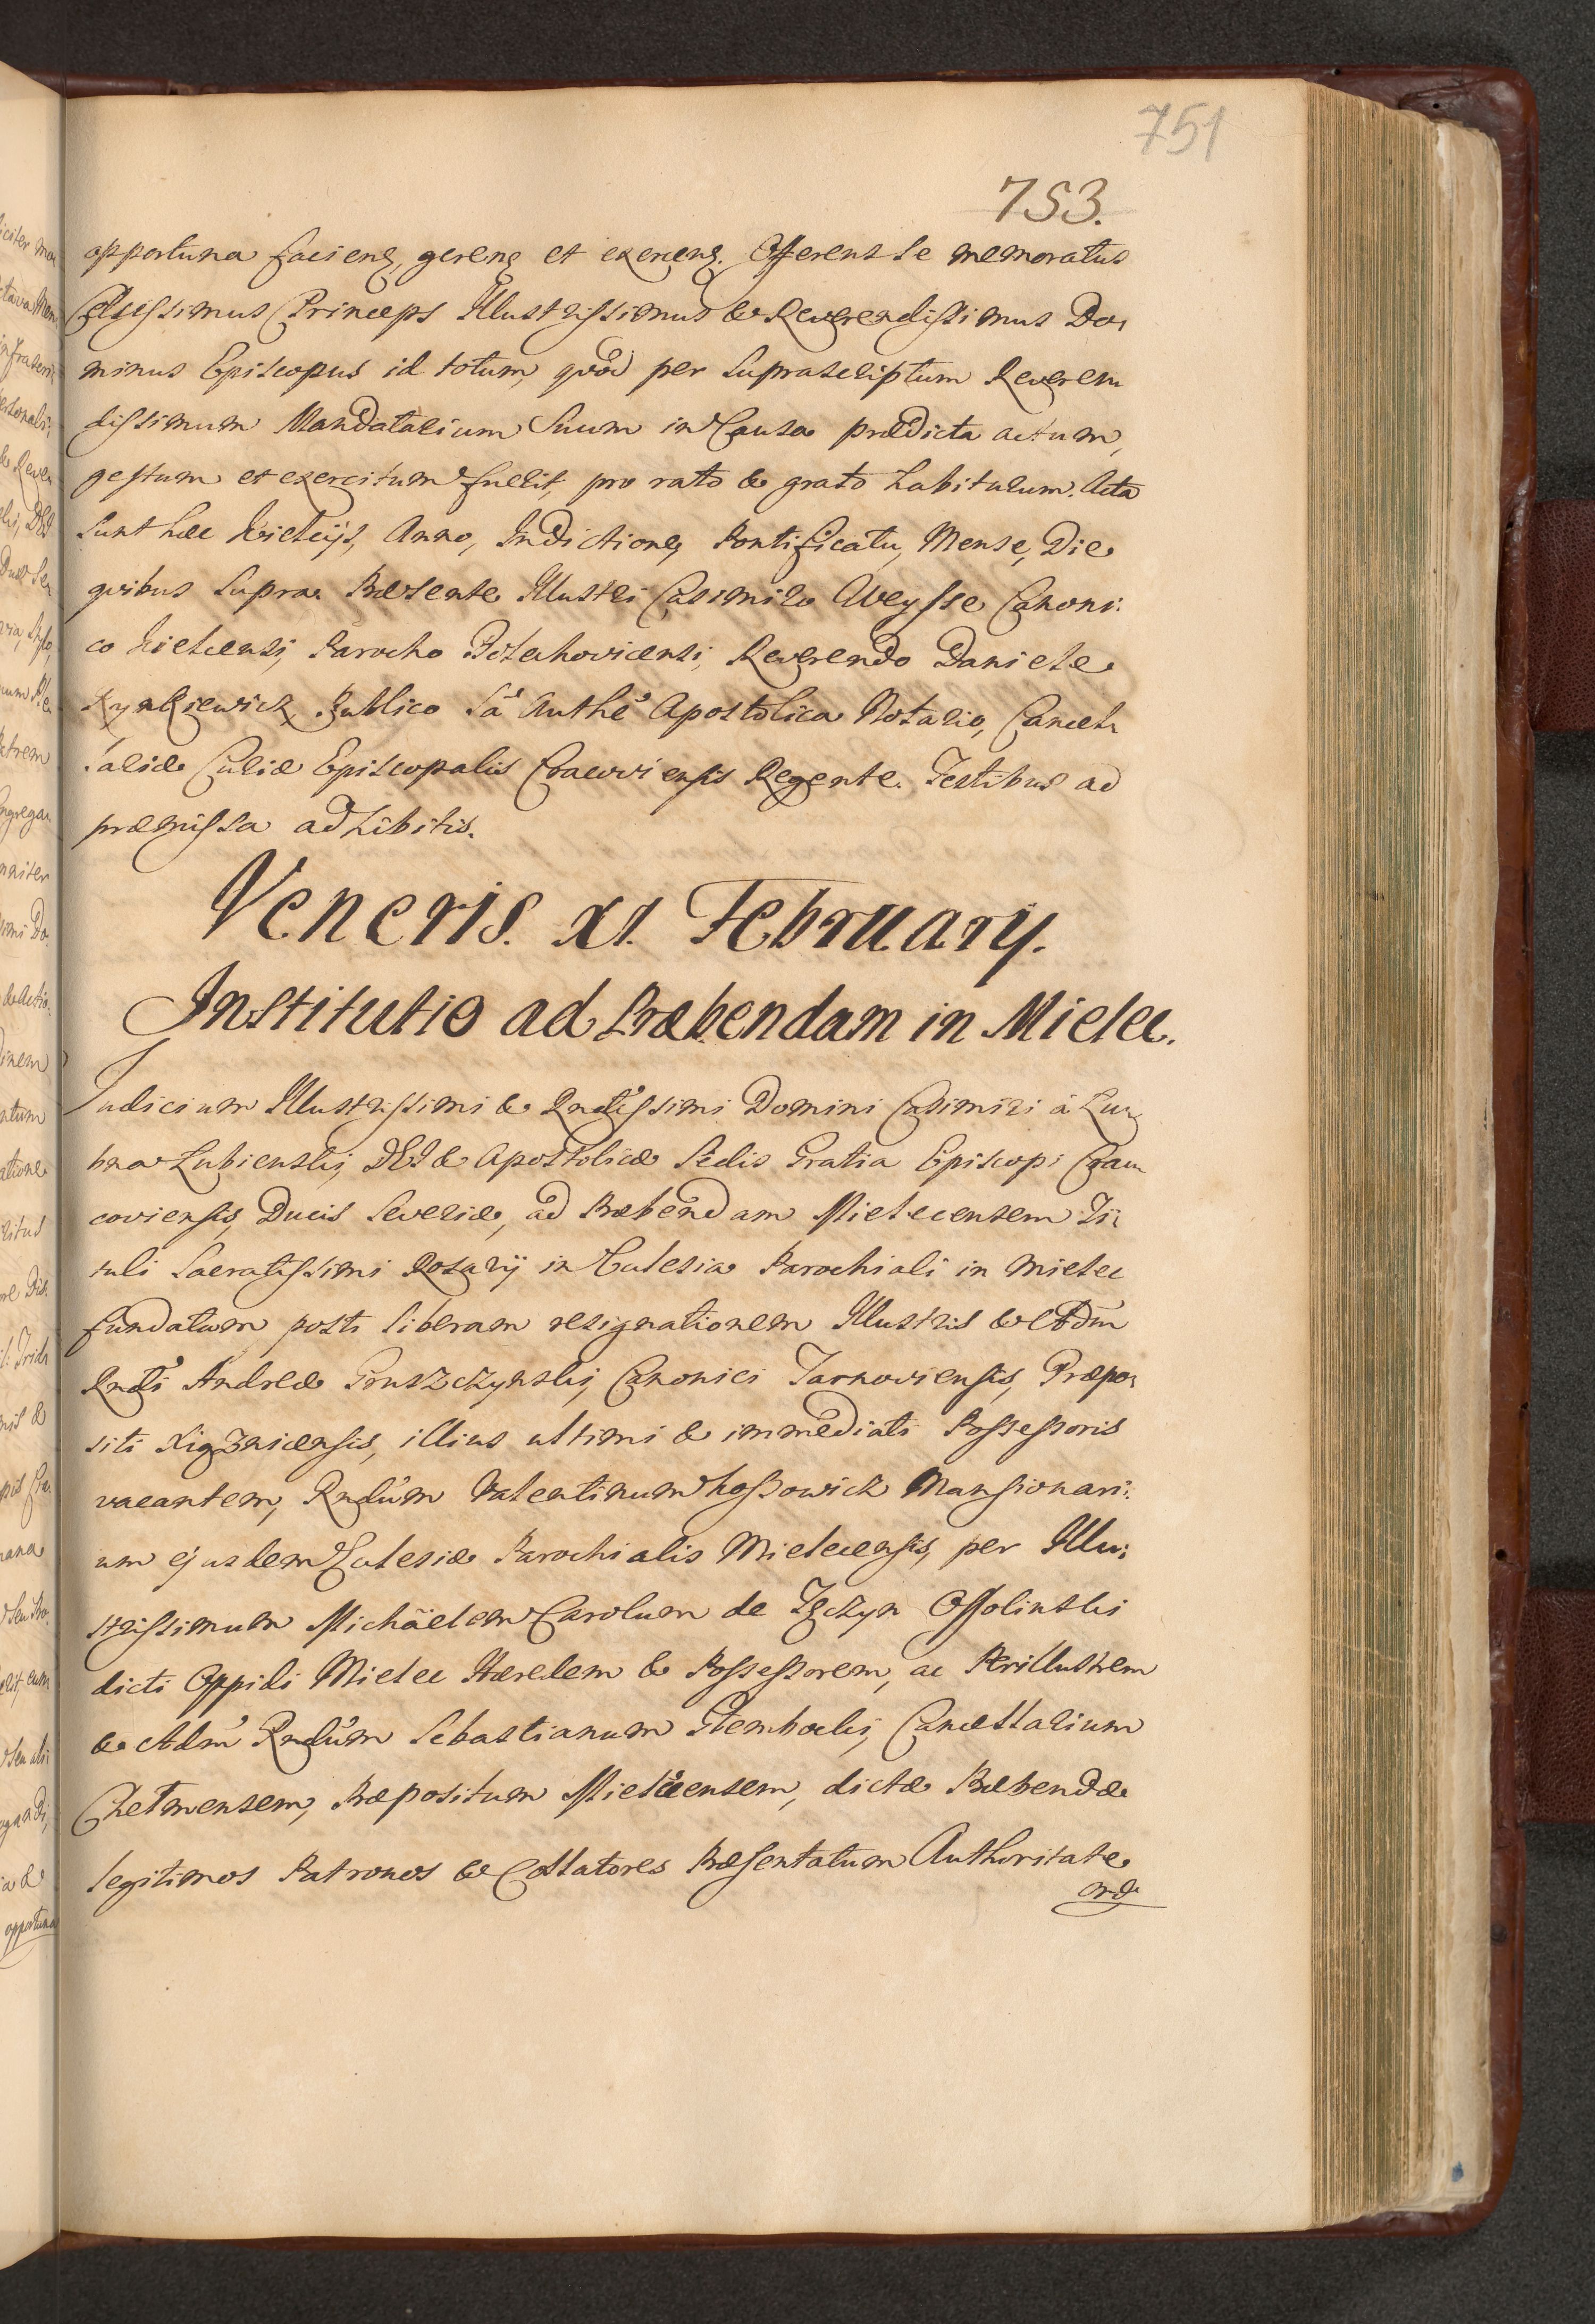 751
753.
opportuna faciend, gerend et exercend. Offerens se memoratus
Celsissimus Princeps Illustrissimus & Reverendissimus Do,
minus Episcopus id totum, quod per suprascriptum Reveren
dissimum Mandatarium Suum in Causa prædicta actum,
gestum et exercitum fuerit, pro rato & grato habiturum. Acta
sunt hæc Kielcijs, Anno, Indictione, Pontificatu, Mense, Die
quibus supra. Præsente Illustri Casimiro Weysse Canoni:
co Kielcensi, Parocho Bolechovicensi, Reverendo Daniele
Publico Sâ Authê Apostolica Notario, Cancel,
lariæ Curiæ Episcopalis Cracoviensis Regente. Testibus ad
præmissa adhibitis.
Veneris. XI. February.
Institutio ad Præbendam in Mielec.
Judicium Illustrissimi & Rndissimi Domini Casimiri à Lu,
bna Lubienskij, DEI & Apostolicæ Sedis Gratia Episcopi Cra,
coviensis, Ducis Severiæ, ad Præbendam Mielecensem Ti,
tuli Sacratissimi Rosarij in Ecclesia Parochiali in Mielec
fundatam post liberam resignationem Illustris & Adm
Rndi Andreæ Gruszczynskij, Canonici Tarnoviensis, Præpo,
siti Xiąznicensis, illius ultimi & immediati Possessoris
vacantem, Rndum Valentinum Mansionari:
um ejusdem Ecclesiæ Parochialis Mielecensis, per Illu:
strissimum Michäelem Carolum de Tęczyn Ossolinski
dicti Oppidi Mielec Hæredem & Possessorem, ac Perillustrem
& Adm Rndum Sebastianum Glembockij, Cancellarium
Chelmensem, Præpositum Mielecensem, dictæ Præbendæ
legitimos Patronos & Collatores Præsentatum Authoritate
ord